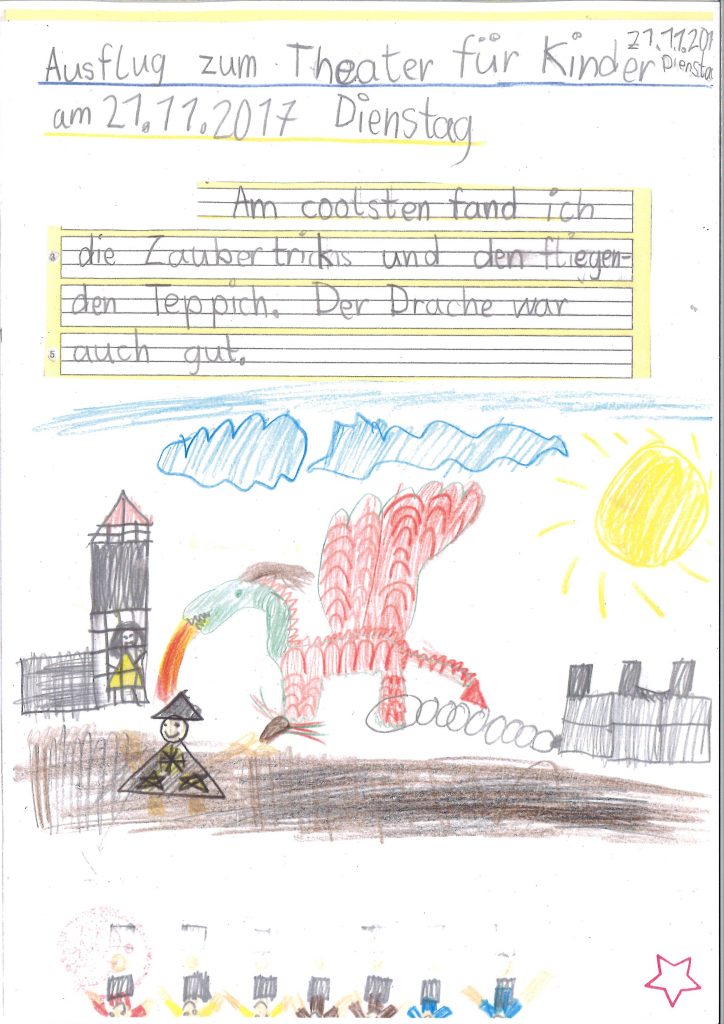 21.11.201
Diensta
Ausflug zum Theater für Kinder
am 21.11.2017 Dienstag
Am coolsten fand ich
die Zaubertricks und den fliegen-
den Teppich. Der Drache war
5 auch gut.